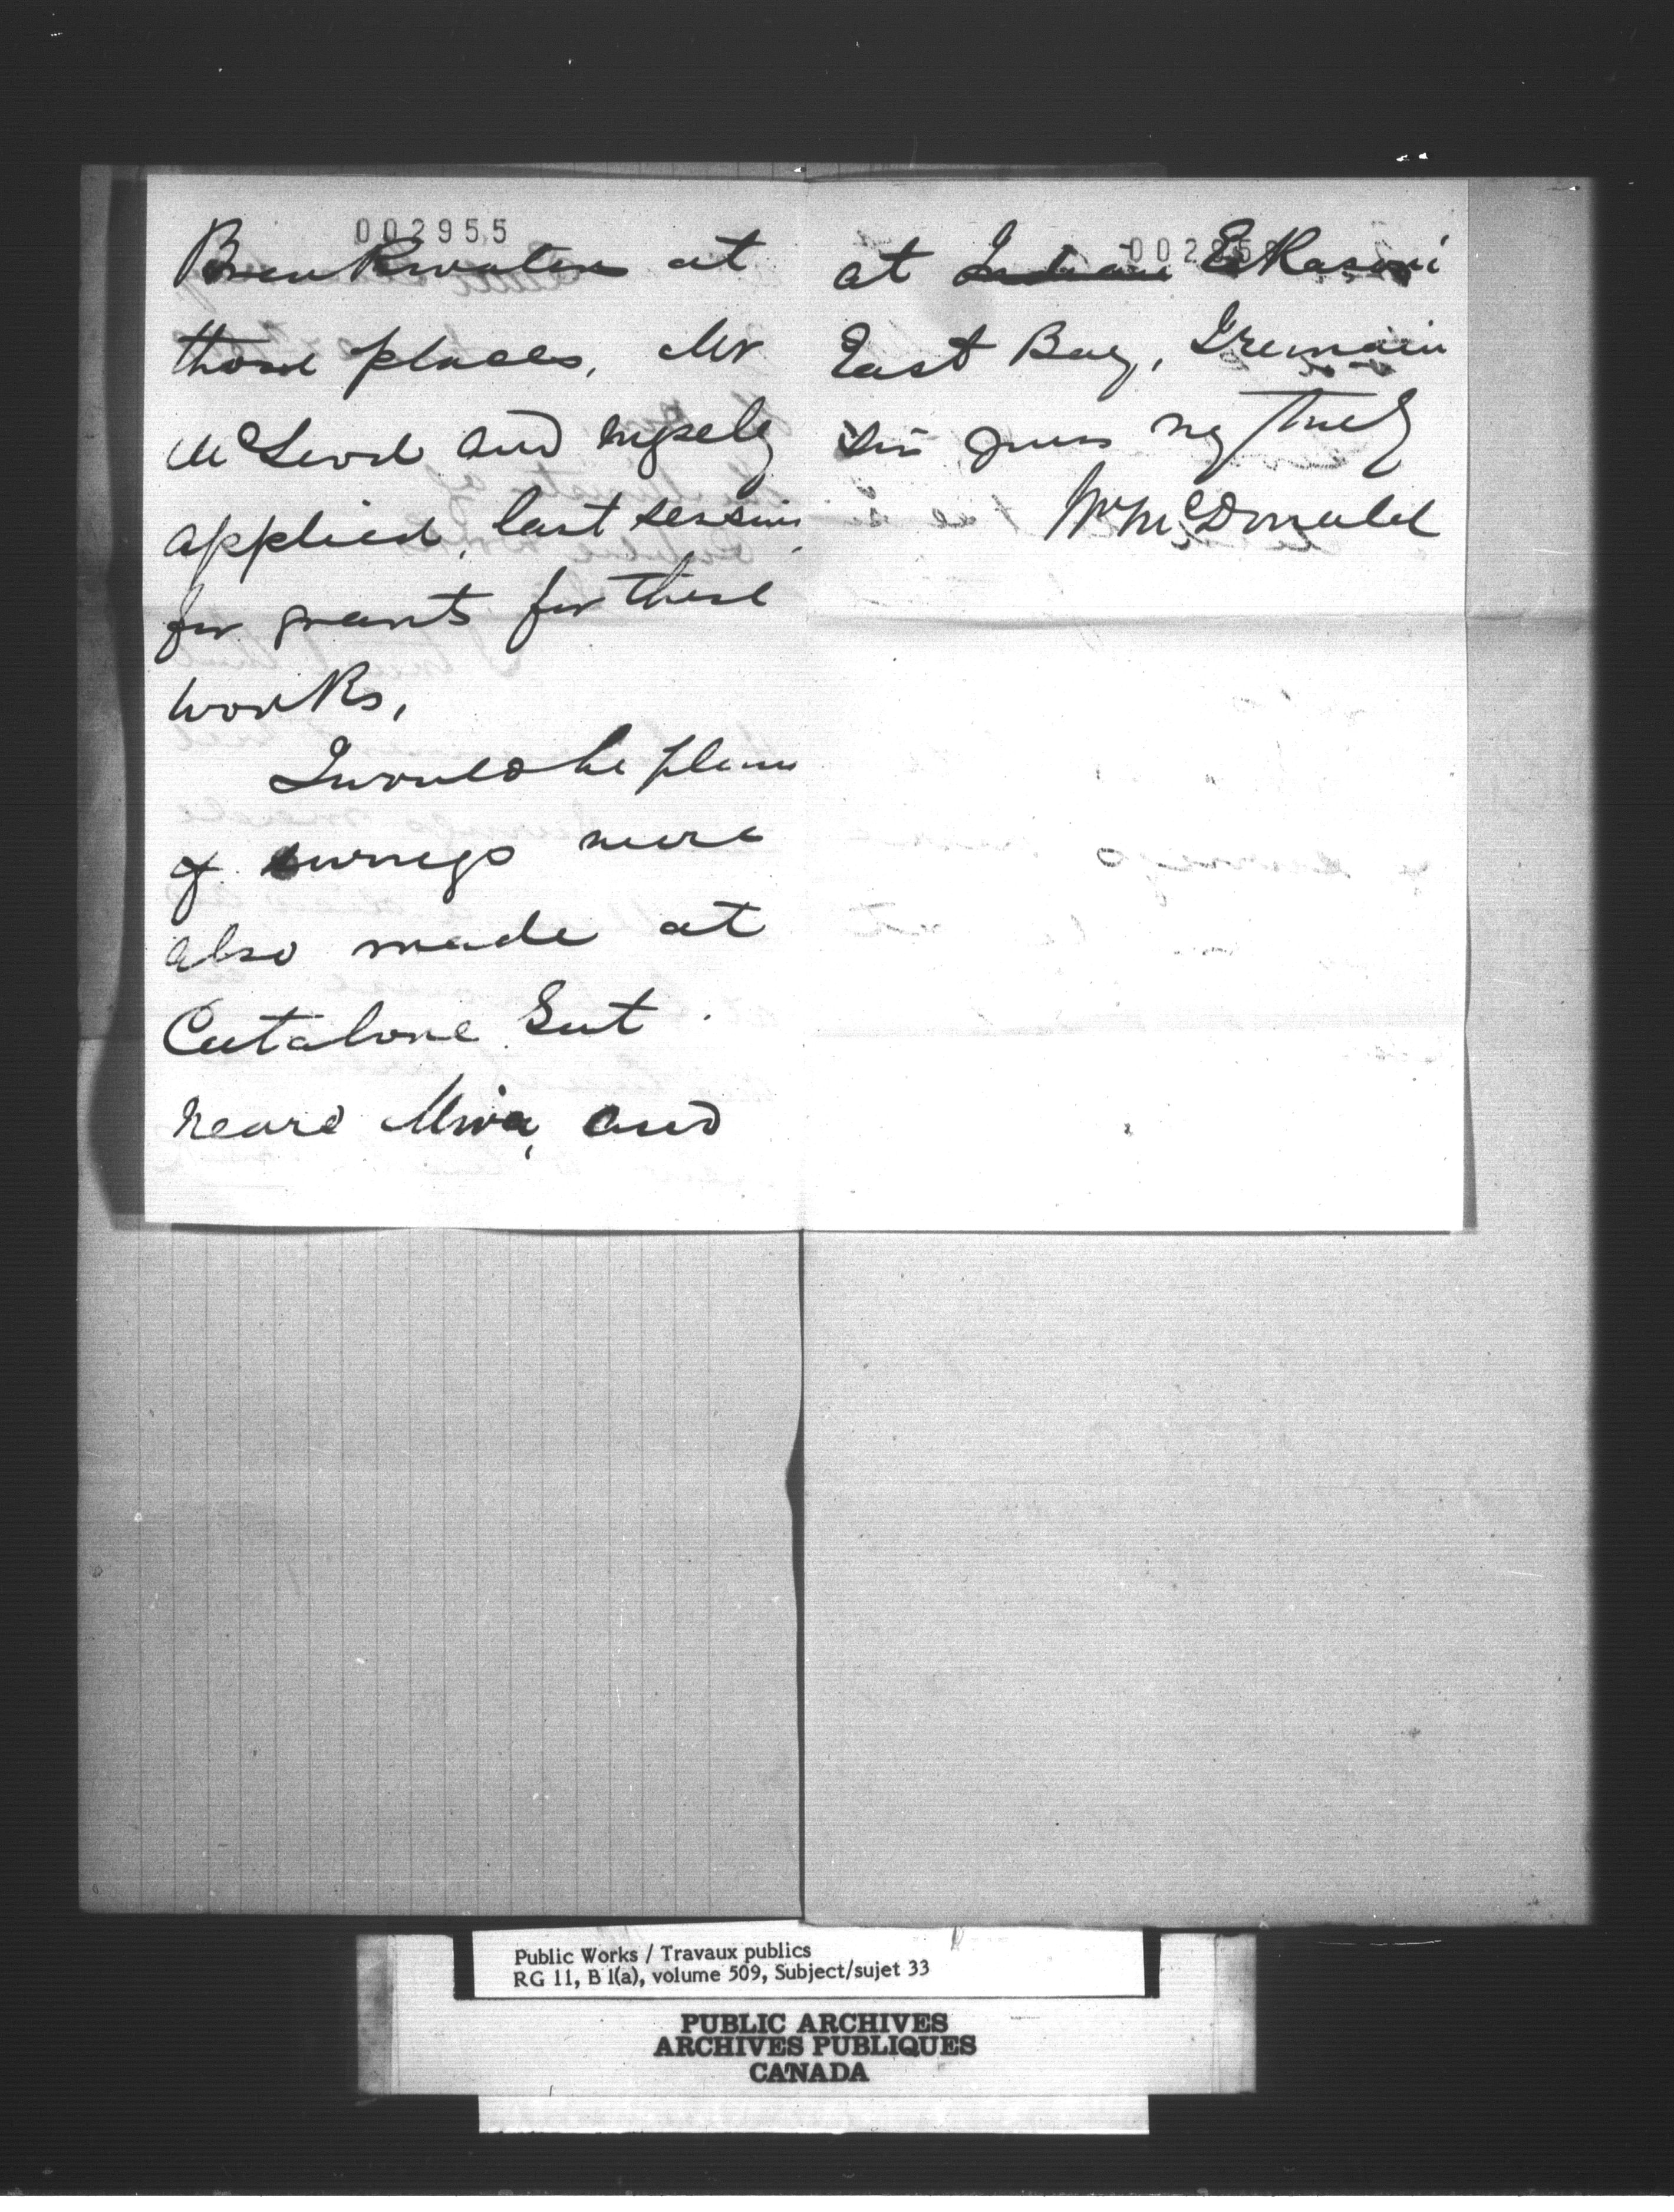 002955
Breakwaters at
those places, Mr
McLeod and myself
applied, last session
for grants for these
works,
I would be pleas
if surveys were
also made at
Catalone Gut
neard Mira, and
at Indian Eskasoni
East Bay, I remain
sir yours vy truly
Wm McDonald
Public Works / Travaux publics
RG 11, B 1(a), volume 509, Subject/sujet 33
PUBLIC ARCHIVES
ARCHIVES PUBLIQUES
CANADA